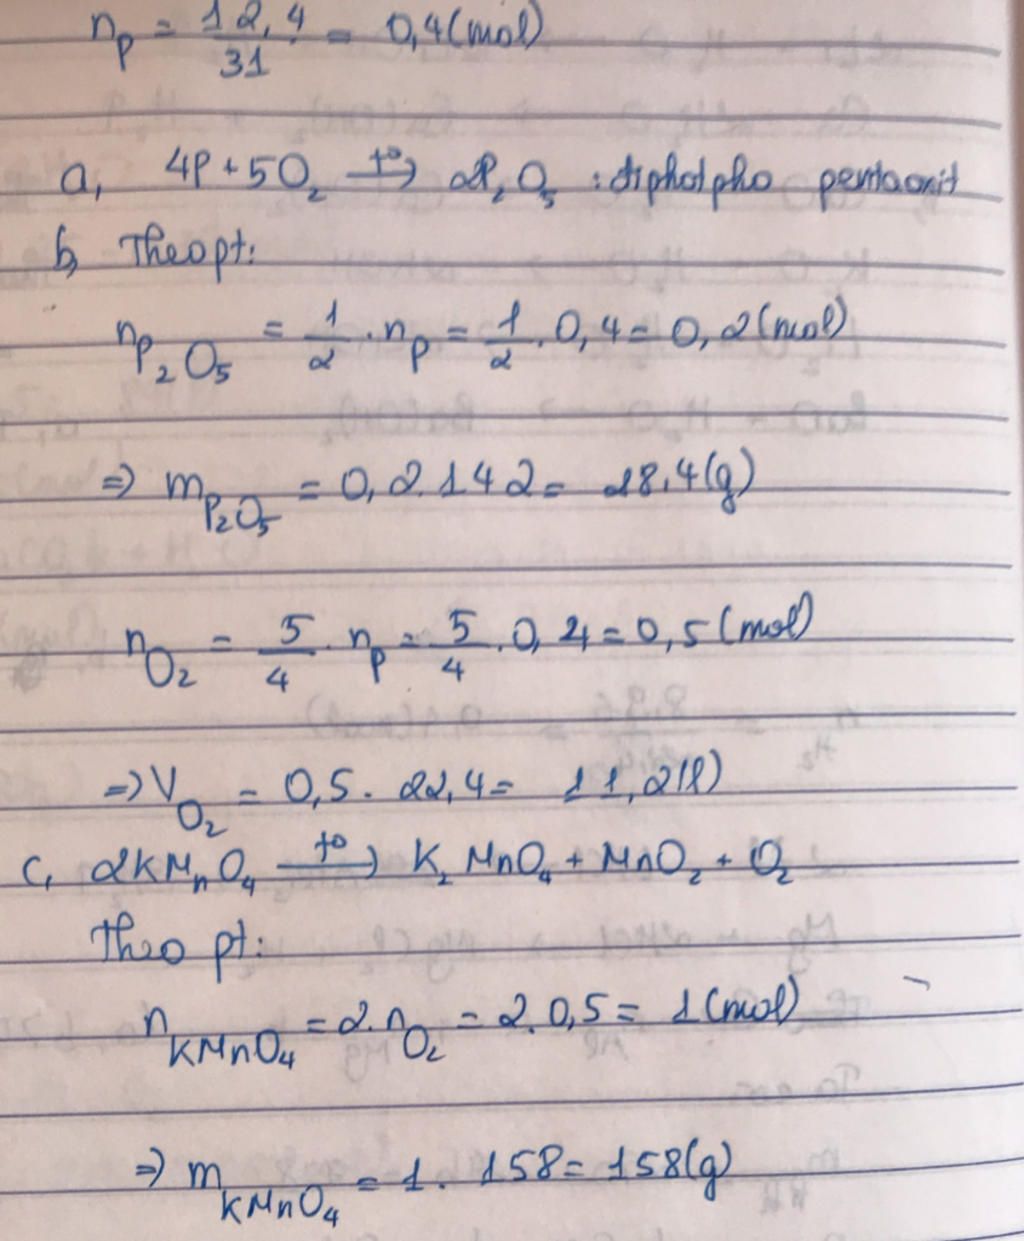 n_P = 12,4/31 = 0,4(mol)
a, 4P + 5O₂ —t°→ 2P₂O₅ : điphotpho pentaoxit
b, Theo pt:
n_P₂O₅ = 1/2 . n_P = 1/2 . 0,4 = 0,2(mol)
=> m_P₂O₅ = 0,2.142 = 28,4(g)
n_O₂ = 5/4 . n_P = 5/4 . 0,4 = 0,5(mol)
=> V_O₂ = 0,5 . 22,4 = 11,2(l)
c, 2KMnO₄ —t°→ K₂MnO₄ + MnO₂ + O₂
Theo pt:
n_KMnO₄ = 2.n_O₂ = 2.0,5 = 1(mol)
=> m_KMnO₄ = 1 . 158 = 158(g)